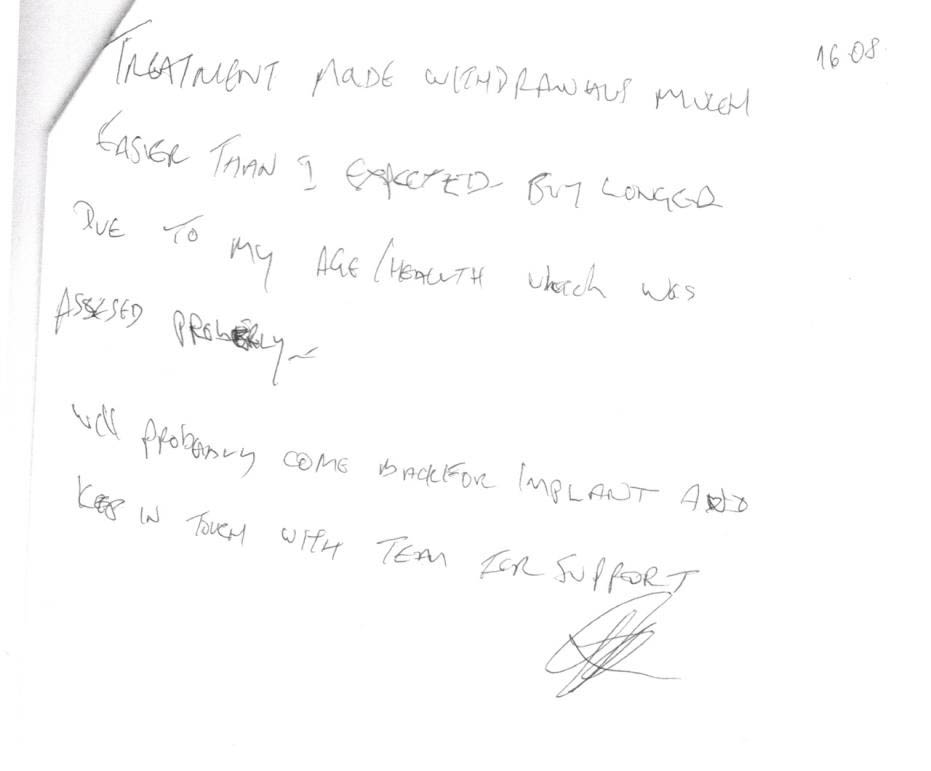 16 08
TREATMENT MADE WITHDRAWALS MUCH
EASIER THAN I EXPECTED BUT LONGER
DUE TO MY AGE/HEALTH which WAS
ASSESED PROPERLY -
Will PROBABLY COME BACK FOR IMPLANT AND
KEEP IN TOUCH WITH TEAM FOR SUPPORT